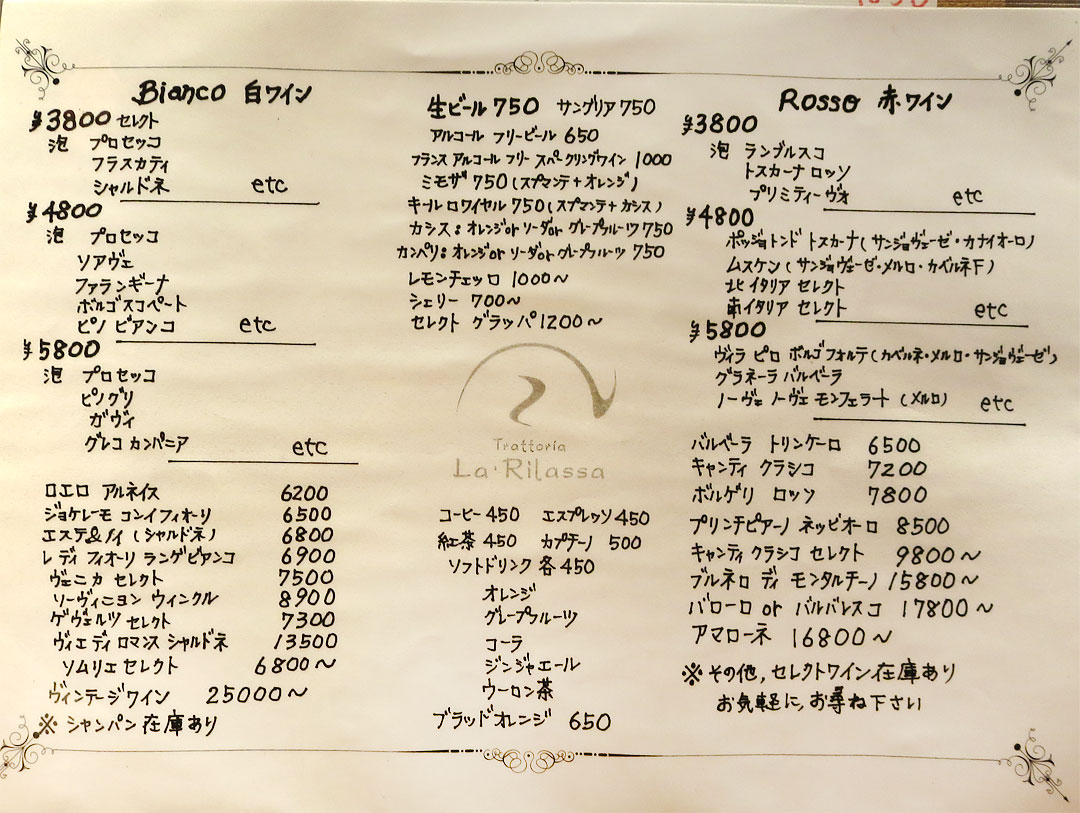 Bianco 白ワイン
¥3800 セレクト
泡 プロセッコ
フラスカティ
シャルドネ etc
¥4800
泡 プロセッコ
ソアヴェ
ファランギーナ
ボルゴスコペート
ピノ ビアンコ etc
¥5800
泡 プロセッコ
ピノグリ
ガヴィ
グレコ カンパニア etc
ロエロ アルネイス 6200
ジョケレーモ コンイフィオーリ 6500
エステ&ノイ (シャルドネ) 6800
レ ディ フィオーリ ランゲビアンコ 6900
ヴェニカ セレクト 7500
ソーヴィニヨン ウィンクル 8900
ゲヴェルツ セレクト 7300
ヴィエ ディ ロマンス シャルドネ 13500
ソムリエ セレクト 6800〜
ヴィンテージワイン 25000〜
※ シャンパン在庫あり
生ビール 750 サングリア 750
アルコール フリービール 650
フランス アルコール フリー スパークリングワイン 1000
ミモザ 750 (スプマンテ+オレンジ)
キール ロワイヤル 750 (スプマンテ+カシス)
カシス:オレンジ or ソーダ or グレープフルーツ 750
カンパリ:オレンジ or ソーダ or グレープフルーツ 750
レモンチェッロ 1000〜
シェリー 700〜
セレクト グラッパ 1200〜
Trattoria
La・Rilassa
コーヒー 450 エスプレッソ 450
紅茶 450 カプチーノ 500
ソフトドリンク 各450
オレンジ
グレープフルーツ
コーラ
ジンジャエール
ウーロン茶
ブラッドオレンジ 650
Rosso 赤ワイン
¥3800
泡 ランブルスコ
トスカーナ ロッソ
プリミティーヴォ etc
¥4800
ポッジョトンド トスカーナ (サンジョヴェーゼ・カナイオーロ)
ムスケン (サンジョヴェーゼ・メルロ・カベルネF)
北イタリア セレクト
南イタリア セレクト etc
¥5800
ヴィラ ピロ ボルゴ フォルテ (カベルネ・メルロ・サンジョヴェーゼ)
グラネーラ バルベーラ
ノーヴェ ノーヴェ モンフェラート (メルロ) etc
バルベーラ トリンケーロ 6500
キャンティ クラシコ 7200
ボルゲリ ロッソ 7800
プリンチピアーノ ネッビオーロ 8500
キャンティ クラシコ セレクト 9800〜
ブルネロ ディ モンタルチーノ 15800〜
バローロ or バルバレスコ 17800〜
アマローネ 16800〜
※ その他, セレクトワイン在庫あり
お気軽に, お尋ね下さい